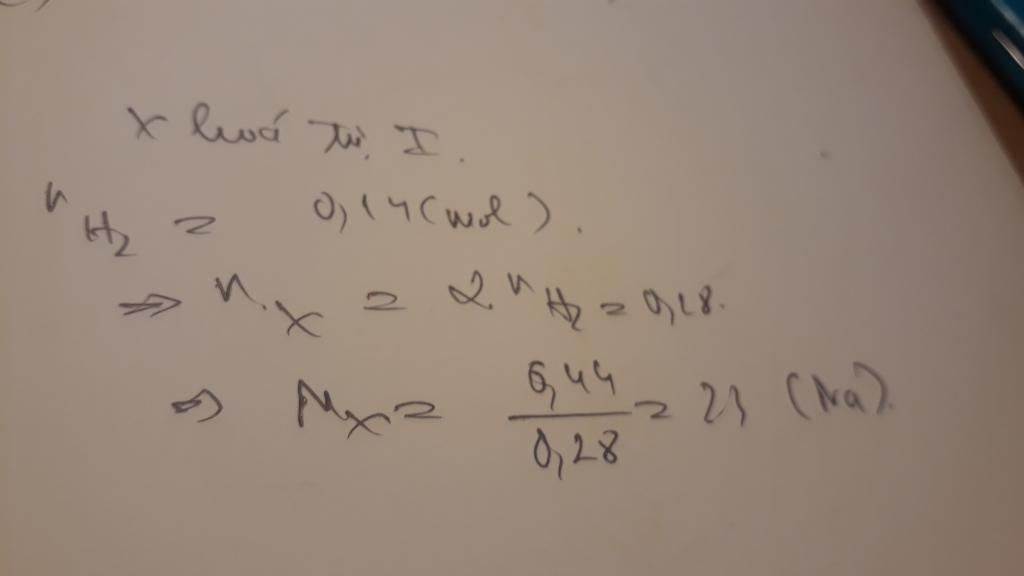 X hoá trị I.
nH₂ = 0,14 (mol).
⇒ nX = 2.nH₂ = 0,28.
⇒ MX = 6,44 / 0,28 = 23 (Na).